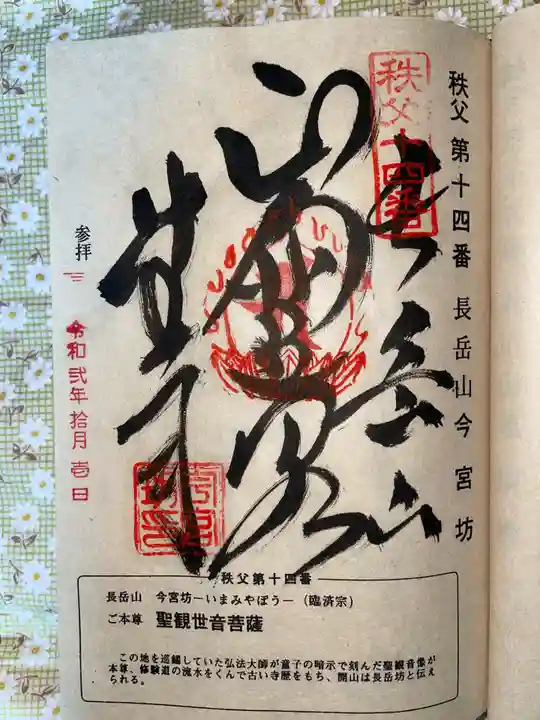 秩父第十四番 長岳山今宮坊
秩父十四番
長岳山
参拝
令和弐年拾月壱日
秩父第十四番
長岳山 今宮坊―いまみやぼう―(臨済宗)
ご本尊 聖観世音菩薩
この地を巡錫していた弘法大師が童子の暗示で刻んだ聖観音像が
本尊、修験道の流水をくんで古い寺歴をもち、開山は長岳坊と伝え
られる。